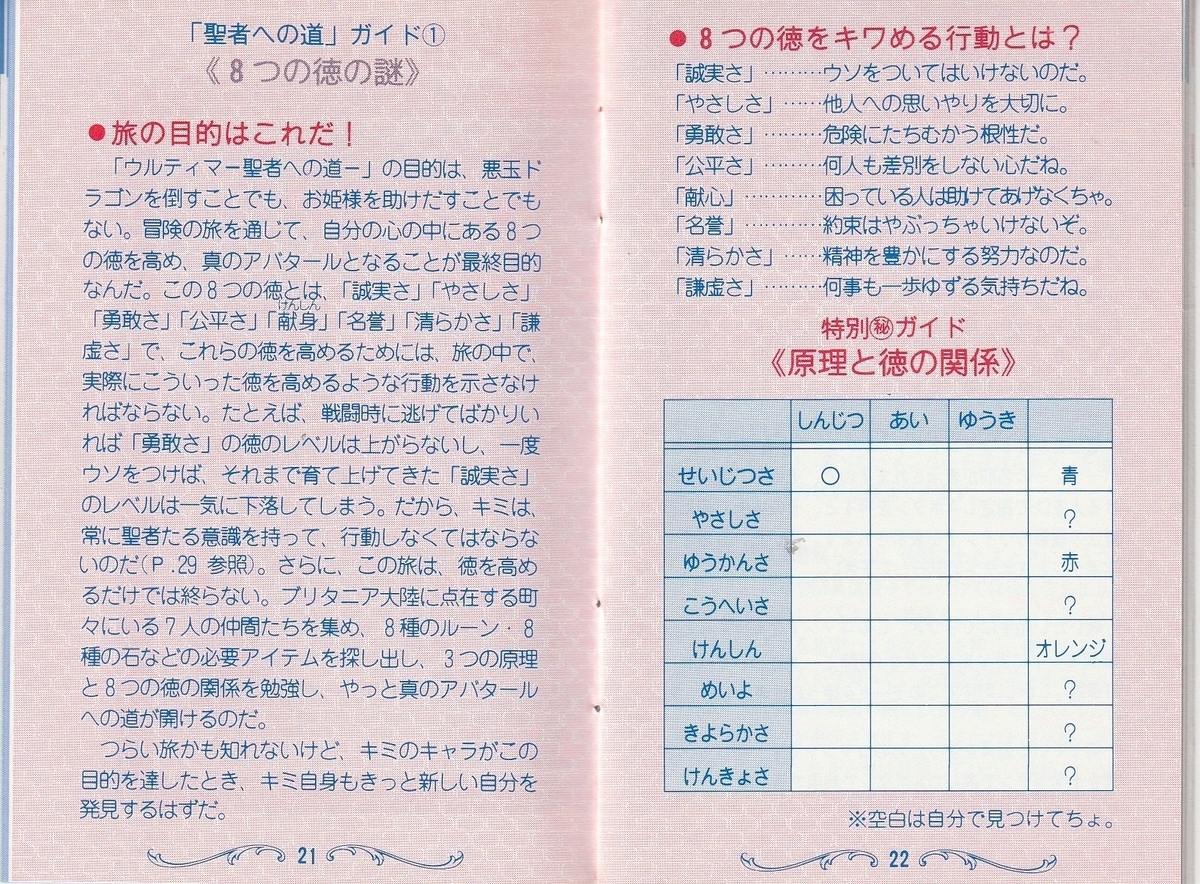 「聖者への道」ガイド①
《8つの徳の謎》
●旅の目的はこれだ!
「ウルティマー聖者への道ー」の目的は、悪玉ド
ラゴンを倒すことでも、お姫様を助けだすことでも
ない。冒険の旅を通じて、自分の心の中にある8つ
の徳を高め、真のアバタールとなることが最終目的
なんだ。この8つの徳とは、「誠実さ」「やさしさ」
「勇敢さ」「公平さ」「献身」「名誉」「清らかさ」「謙
けんしん
虚さ」で、これらの徳を高めるためには、旅の中で、
実際にこういった徳を高めるような行動を示さなけ
ればならない。たとえば、戦闘時に逃げてばかりい
れば「勇敢さ」の徳のレベルは上がらないし、一度
ウソをつけば、それまで育て上げてきた「誠実さ」
のレベルは一気に下落してしまう。だから、キミは、
常に聖者たる意識を持って、行動しなくてはならな
いのだ(P.29 参照)。さらに、この旅は、徳を高め
るだけでは終らない。ブリタニア大陸に点在する町
々にいる7人の仲間たちを集め、8種のルーン・8
種の石などの必要アイテムを探し出し、3つの原理
と8つの徳の関係を勉強し、やっと真のアバタール
への道が開けるのだ。
つらい旅かも知れないけど、キミのキャラがこの
目的を達したとき、キミ自身もきっと新しい自分を
発見するはずだ。
21
●8つの徳をキワめる行動とは?
「誠実さ」………ウソをついてはいけないのだ。
「やさしさ」……他人への思いやりを大切に。
「勇敢さ」………危険にたちむかう根性だ。
「公平さ」………何人も差別をしない心だね。
「献心」…………困っている人は助けてあげなくちゃ。
「名誉」…………約束はやぶっちゃいけないぞ。
「清らかさ」……精神を豊かにする努力なのだ。
「謙虚さ」………何事も一歩ゆずる気持ちだね。
特別㊙ガイド
《原理と徳の関係》
しんじつ あい ゆうき
せいじつさ ○ 青
やさしさ ?
ゆうかんさ 赤
こうへいさ ?
けんしん オレンジ
めいよ ?
きよらかさ ?
けんきょさ ?
※空白は自分で見つけてちょ。
22